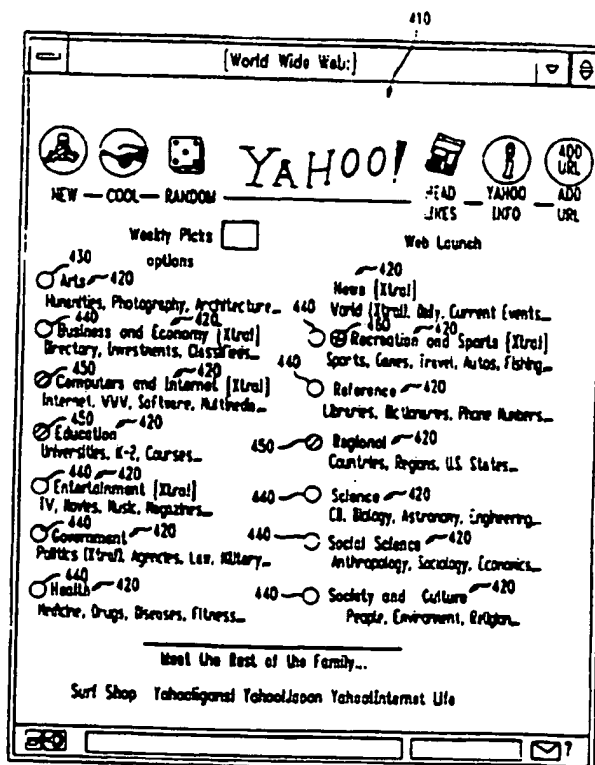 410
[World Wide Web:]
YAHOO!
ADD URL
NEW — COOL — RANDOM
HEAD LIKES — YAHOO INFO — ADD URL
Weekly Picks
Web Launch
options
430
Arts 420
Humanities, Photography, Architecture...
440
Business and Economy [Xtra!] 420
Directory, Investments, Classifieds...
450
Computers and Internet [Xtra!] 420
Internet, WWW, Software, Multimedia...
450
Education 420
Universities, K-2, Courses...
440
Entertainment [Xtra!] 420
TV, Movies, Music, Magazines...
440
Government 420
Politics [Xtra!], Agencies, Law, Military...
440
Health 420
Medicine, Drugs, Diseases, Fitness...
420
News [Xtra!]
World [Xtra!], Daily, Current Events...
440 460
Recreation and Sports [Xtra!] 420
Sports, Games, Travel, Autos, Fishing...
440
Reference 420
Libraries, Dictionaries, Phone Numbers...
450 Regional 420
Countries, Regions, U.S. States...
440 Science 420
CS, Biology, Astronomy, Engineering...
440 Social Science 420
Anthropology, Sociology, Economics...
440 Society and Culture 420
People, Environment, Religion...
Meet the Rest of the Family...
Surf Shop Yahooligans! Yahoo!Japan Yahoo!Internet Life
?